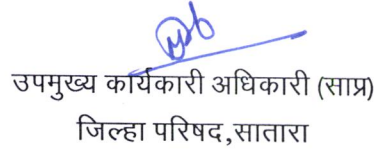 उपमुख्य कार्यकारी अधिकारी (साप्र)
जिल्हा परिषद,सातारा